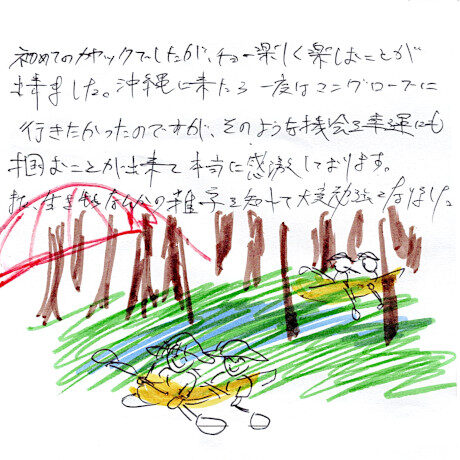 初めてのカヤックでしたが、チョー楽しく楽しむことが
出来ました。沖縄に来たら一度はマングローブに
行きたかったのですが、そのような機会を幸運にも
掴むことが出来て本当に感激しております。
生き物なんかの雑学を知れて大変勉強になりました。